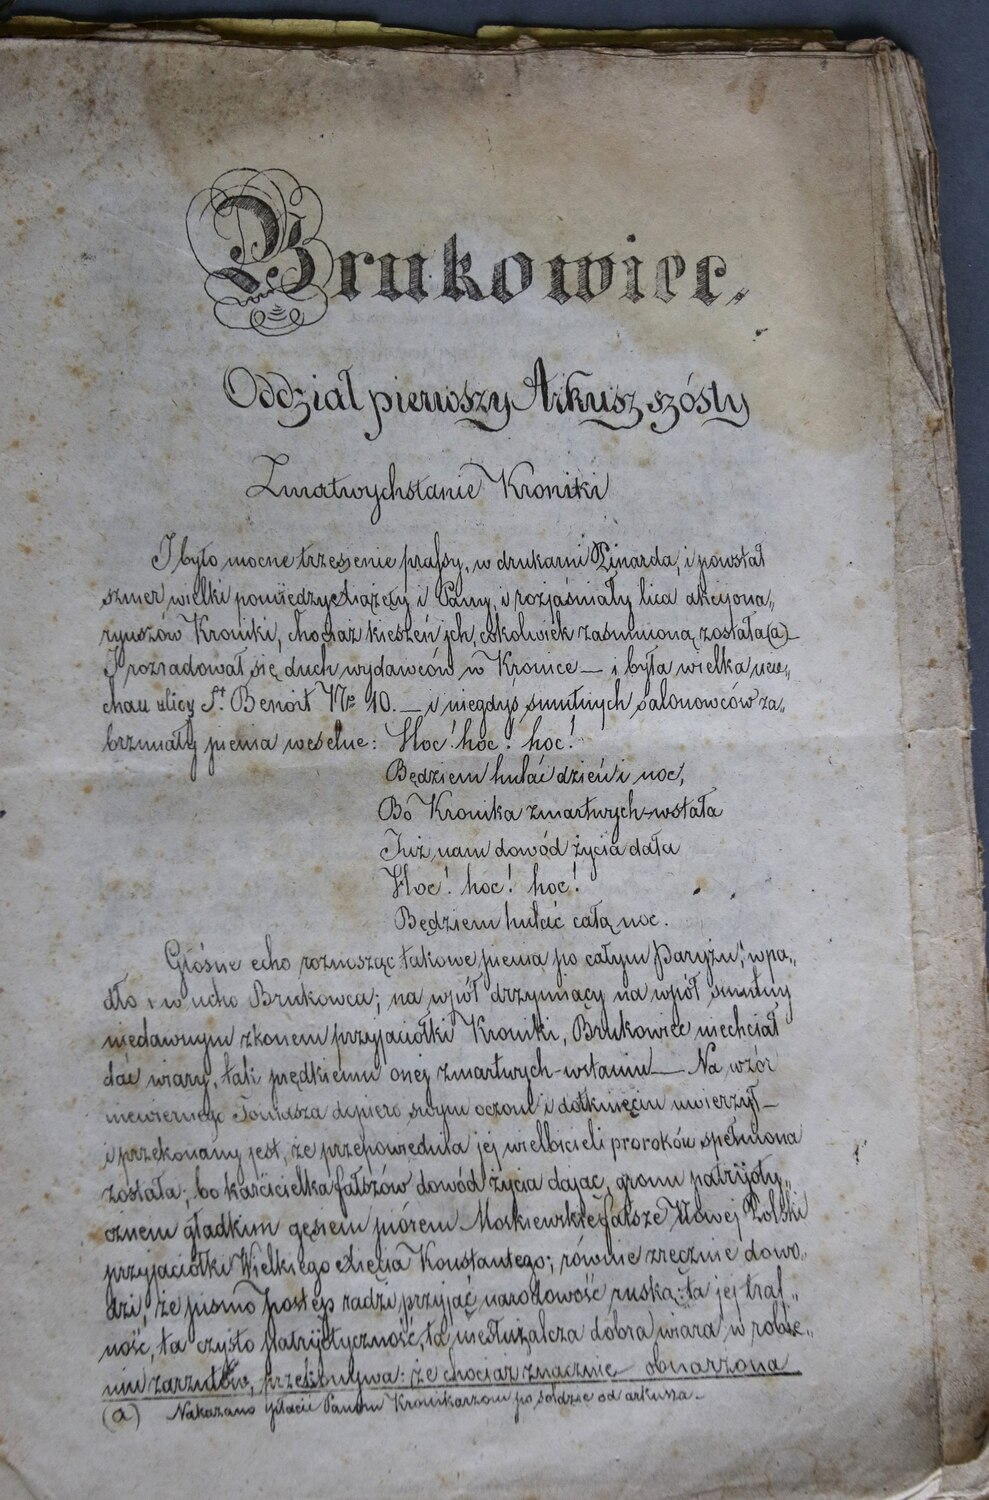 Brukowiec.
Oddział pierwszy Arkusz szósty
Zmartwychstanie Kroniki
I było mocne trzęsienie prassy, w drukarni Pinarda, i powstał
szmer wielki pomiędzy Xiążęty i Pany, i rozjaśniały lica akcyona„
ryuszów Kroniki, chociaż kieszeń ich, cokolwiek zasmuconą została (a)
I rozradował się duch wydawców w Kronice — i była wielka ucie„
cha u ulicy St. Benoit No 10. — i niegdyś smutnych salonowców za„
brzmiały pienia weselne: Hoc! hoc! hoc!
Będziem hulać dzień i noc,
Bo Kronika zmartwych-wstała
Już nam dowód życia dała
Hoc! hoc! hoc!
Będziem hulać całą noc.
Głośne echo roznosząc takowe pienia po całym Paryżu, wpa„
dło i w ucho Brukowca; na wpół drzymiący na wpół smutny
niedawnym zkonem przyjaciółki Kroniki, Brukowiec niechciał
dać wiary, tak prędkiemu onej zmartwych-wstaniu — Na wzór
niewiernego Tomasza dopiero swym oczom i dotknięciu uwierzył —
i przekonany jest, że przepowiednia jej wielbicieli proroków spełniona
została; bo karcicielka fałszów dowód życia dając, gromi patryoty„
cznem gładkim gęsiem piórem Moskiewskie fałsze Nowej Polski
przyjaciółki Wielkiego Xięcia Konstantego; równie zręcznie dowo„
dzi, że pismo Postęp radzi przyjąć narodowość ruską: ta jej traf„
ność, ta czysto patryotyczność, ta niesłużalcza dobra wiara w robie„
niu zarzutów, przekonywa: że chociaż znacznie obnażona
(a) Nakazano płacić Panom Kronikarzom po sołdzie od arkusza.